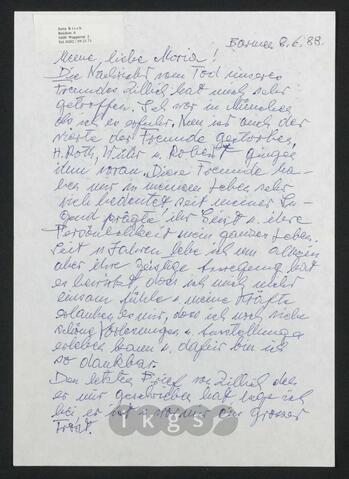 Barmen 8.6.88.
Meine liebe Maria!
Die Nachricht vom Tod unseres
Freundes Zillich hat mich sehr
getroffen. Ich war in München
als ich es erfuhr. Nun ist auch der
vierte der Freunde gestorben,
H. Roth, Wühr u. Robert gingen
ihm voran. Diese Freunde ha-
ben mir in meinem Leben sehr
viel bedeutet seit meiner Ju-
gend prägte ihr Geist u. ihre
Persönlichkeit mein ganzes Leben.
Seit Jahren lebe ich nun allein
aber ihre geistige Anregung hat
es bewirkt dass ich mich nicht
einsam fühle u. meine Kräfte
erlauben es mir, dass ich noch viele
schöne Vorlesungen u. Ausstellungen
erleben kann u. dafür bin ich
so dankbar.
Den letzten Brief von Zillich den
er mir geschrieben hat lege ich
bei, er ist mir ein grosser
Trost.
ikgs